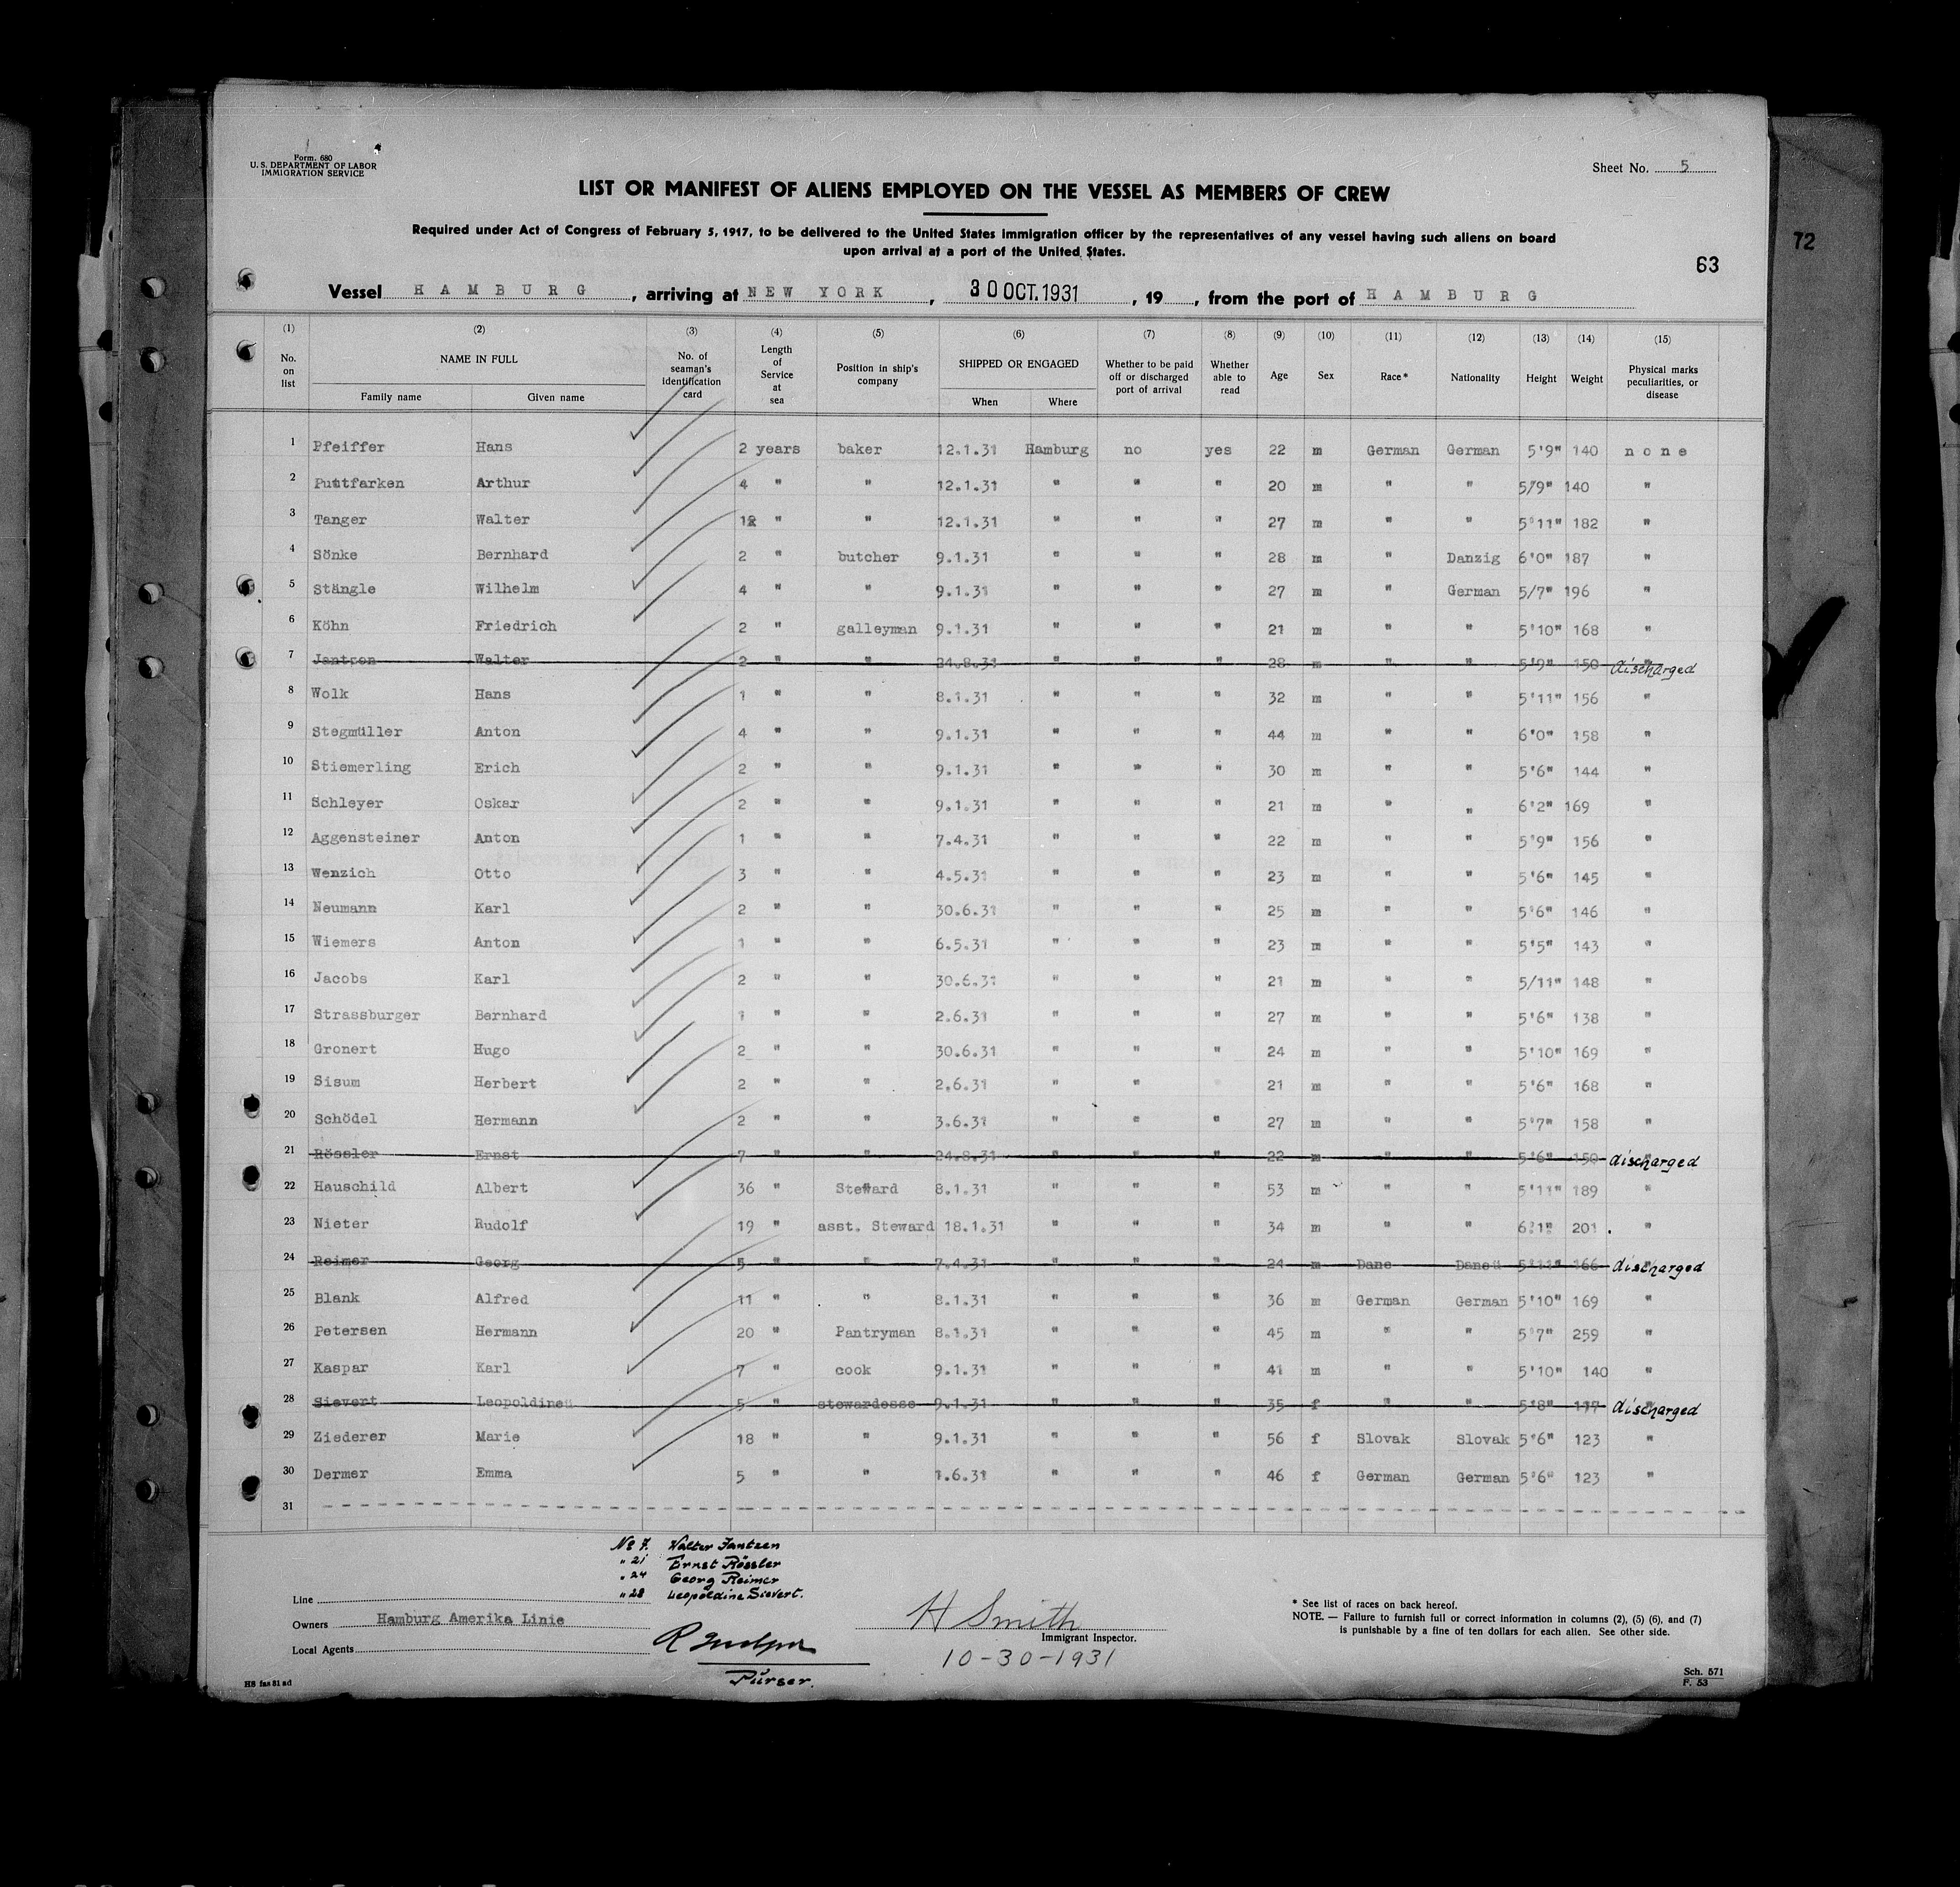 Form. 680
U. S. DEPARTMENT OF LABOR
IMMIGRATION SERVICE
Sheet No. 5
LIST OR MANIFEST OF ALIENS EMPLOYED ON THE VESSEL AS MEMBERS OF CREW
Required under Act of Congress of February 5, 1917, to be delivered to the United States immigration officer by the representatives of any vessel having such aliens on board
upon arrival at a port of the United States.
72
63
Vessel HAMBURG, arriving at NEW YORK, 30 OCT. 1931, 19, from the port of HAMBURG
(1) (2) (3) (4) (5) (6) (7) (8) (9) (10) (11) (12) (13) (14) (15)
No. on list NAME IN FULL Family name Given name No. of seaman's identification card Length of Service at sea Position in ship's company SHIPPED OR ENGAGED When Where Whether to be paid off or discharged port of arrival Whether able to read Age Sex Race* Nationality Height Weight Physical marks peculiarities, or disease
1 Pfeiffer Hans 2 years baker 12.1.31 Hamburg no yes 22 m German German 5'9" 140 none
2 Puttfarken Arthur 4 " " 12.1.31 " " " 20 m " " 5/9" 140 "
3 Tanger Walter 12 " " 12.1.31 " " " 27 m " " 5'11" 182 "
4 Sönke Bernhard 2 " butcher 9.1.31 " " " 28 m " Danzig 6'0" 187 "
5 Stängle Wilhelm 4 " " 9.1.31 " " " 27 m " German 5/7" 196 "
6 Köhn Friedrich 2 " galleyman 9.1.31 " " " 21 m " " 5'10" 168 "
7 Jantzen Walter 2 " " 24.8.31 " " " 28 m " " 5'9" 150 " discharged
8 Wolk Hans 1 " " 8.1.31 " " " 32 m " " 5'11" 156 "
9 Stegmüller Anton 4 " " 9.1.31 " " " 44 m " " 6'0" 158 "
10 Stiemerling Erich 2 " " 9.1.31 " " " 30 m " " 5'6" 144 "
11 Schleyer Oskar 2 " " 9.1.31 " " " 21 m " " 6'2" 169 "
12 Aggensteiner Anton 1 " " 7.4.31 " " " 22 m " " 5'9" 156 "
13 Wenzich Otto 3 " " 4.5.31 " " " 23 m " " 5'6" 145 "
14 Neumann Karl 2 " " 30.6.31 " " " 25 m " " 5'6" 146 "
15 Wiemers Anton 1 " " 6.5.31 " " " 23 m " " 5'5" 143 "
16 Jacobs Karl 2 " " 30.6.31 " " " 21 m " " 5/11" 148 "
17 Strassburger Bernhard 1 " " 2.6.31 " " " 27 m " " 5'6" 138 "
18 Gronert Hugo 2 " " 30.6.31 " " " 24 m " " 5'10" 169 "
19 Sisum Herbert 2 " " 2.6.31 " " " 21 m " " 5'6" 168 "
20 Schödel Hermann 2 " " 3.6.31 " " " 27 m " " 5'7" 158 "
21 Rössler Ernst 7 " " 24.8.31 " " " 22 m " " 5'6" 150 " discharged
22 Hauschild Albert 36 " Steward 8.1.31 " " " 53 m " " 5'11" 189 "
23 Nieter Rudolf 19 " asst. Steward 18.1.31 " " " 34 m " " 6'1" 201 "
24 Reimer Georg 5 " " 7.4.31 " " " 24 m Dane Dane 5'11" 166 " discharged
25 Blank Alfred 11 " " 8.1.31 " " " 36 m German German 5'10" 169 "
26 Petersen Hermann 20 " Pantryman 8.1.31 " " " 45 m " " 5'7" 259 "
27 Kaspar Karl 7 " cook 9.1.31 " " " 41 m " " 5'10" 140 "
28 Sievert Leopoldine 5 " stewardesse 9.1.31 " " " 35 f " " 5'8" 177 " discharged
29 Ziederer Marie 18 " " 9.1.31 " " " 56 f Slovak Slovak 5'6" 123 "
30 Dermer Emma 5 " " 1.6.31 " " " 46 f German German 5'6" 123 "
31
No 7. Walter Jantzen
" 21 Ernst Rössler
" 24 Georg Reimer
" 28 Leopoldine Sievert.
Line
Owners Hamburg Amerika Linie
Local Agents
Purser.
H Smith
Immigrant Inspector.
10-30-1931
* See list of races on back hereof.
NOTE. — Failure to furnish full or correct information in columns (2), (5) (6), and (7)
is punishable by a fine of ten dollars for each alien. See other side.
Sch. 571
F. 53